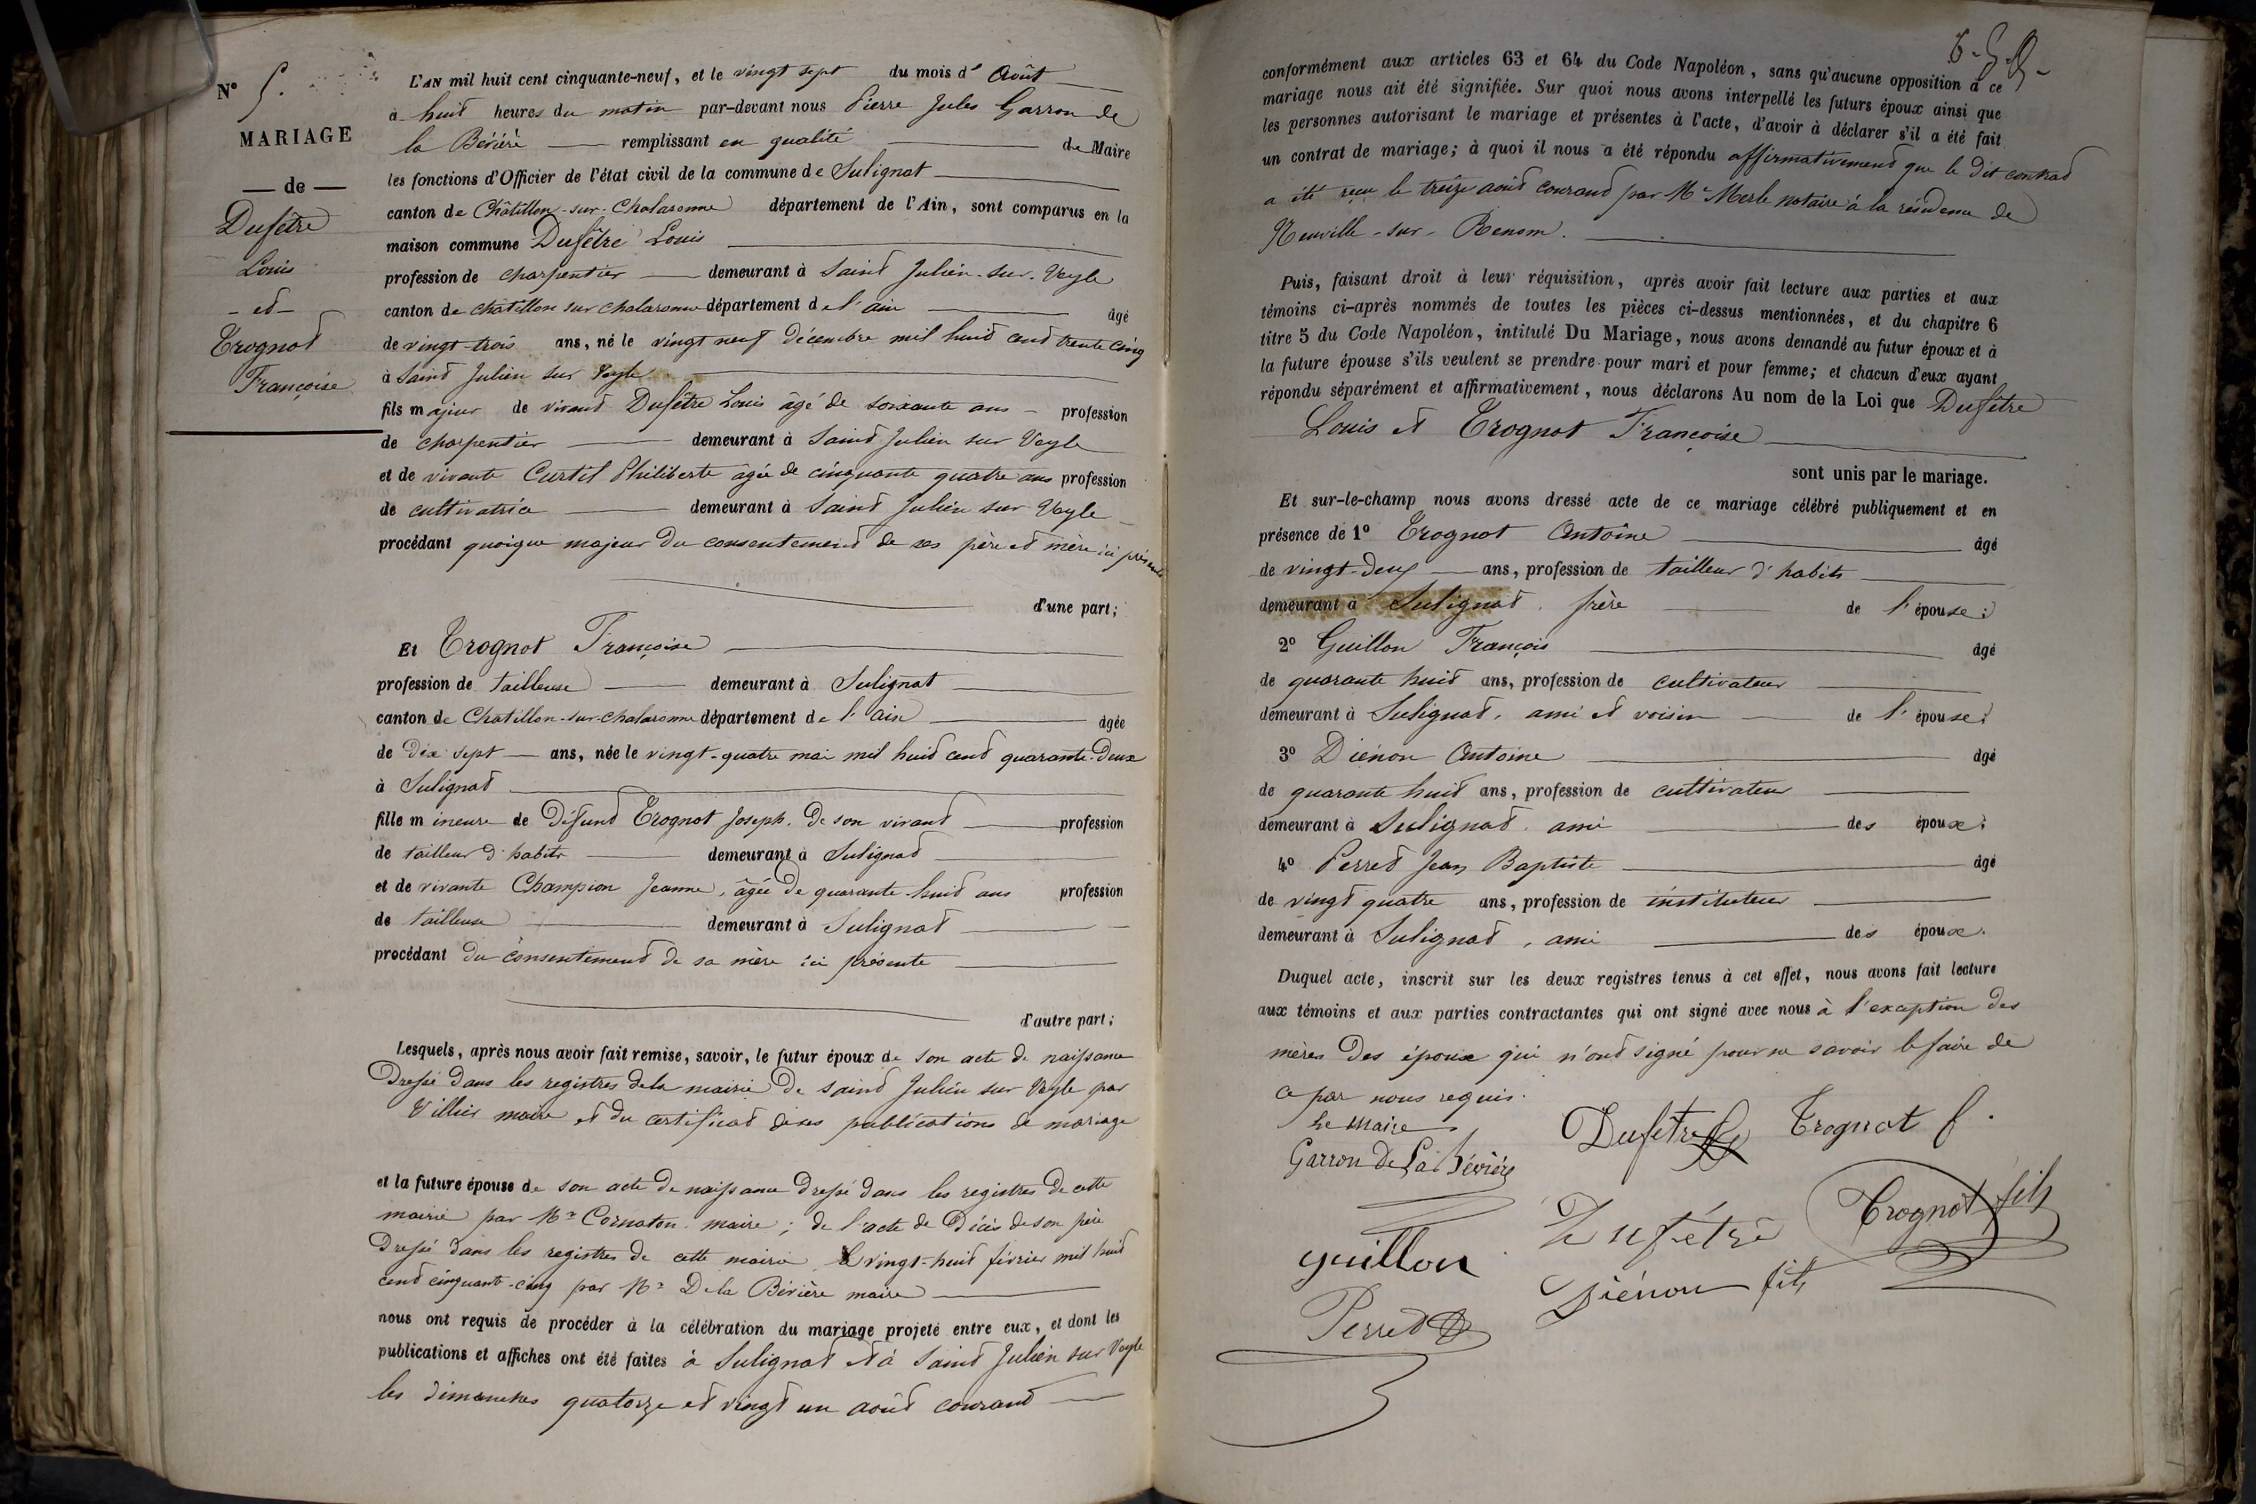 N° 5.
MARIAGE
— de —
Dufêtre
Louis
- et -
Trognot
Françoise
L'AN mil huit cent cinquante-neuf, et le vingt sept du mois d' Août
à huit heures du matin par-devant nous Pierre Jules Garron de
la Bévière remplissant en qualité de Maire
les fonctions d'Officier de l'état civil de la commune de Sulignat
canton de Châtillon-sur-Chalaronne département de l'Ain, sont comparus en la
maison commune Dufêtre Louis
profession de charpentier demeurant à Saint Julien-sur-Veyle
canton de châtillon sur chalaronne département de l'ain âgé
de vingt-trois ans, né le vingt neuf décembre mil huit cent trente cinq
à Saint Julien sur Veyle
fils majeur de vivant Dufêtre Louis âgé de soixante ans - profession
de charpentier demeurant à Saint Julien sur Veyle
et de vivante Curtil Philiberte âgée de cinquante quatre ans profession
de cultivatrice demeurant à Saint Julien sur Veyle
procédant quoique majeur du consentement de ses père et mère ici présents
d'une part;
Et Trognot Françoise
profession de tailleuse demeurant à Sulignat
canton de Chatillon-sur-chalaronne département de l'Ain âgée
de dix sept ans, née le vingt-quatre mai mil huit cent quarante-deux
à Sulignat
fille mineure de défunt Trognot Joseph. de son vivant profession
de tailleur d'habits demeurant à Sulignat
et de vivante Champion Jeanne, âgée de quarante-huit ans profession
de tailleuse demeurant à Sulignat
procédant du consentement de sa mère ici présente
d'autre part;
Lesquels, après nous avoir fait remise, savoir, le futur époux de son acte de naissance
dressé dans les registres de la mairie de saint Julien sur Veyle par
Villier maire et du certificat de ses publications de mariage
et la future épouse de son acte de naissance dressé dans les registres de cette
mairie par Mr Cornaton maire; de l'acte de décès de son père
dressé dans les registres de cette mairie le vingt-huit février mil huit
cent cinquante-cinq par Mr De la Bévière maire
nous ont requis de procéder à la célébration du mariage projeté entre eux, et dont les
publications et affiches ont été faites à Sulignat et à Saint Julien sur Veyle
les dimanches quatorze et vingt un août courant
conformément aux articles 63 et 64 du Code Napoléon, sans qu'aucune opposition à ce
mariage nous ait été signifiée. Sur quoi nous avons interpellé les futurs époux ainsi que
les personnes autorisant le mariage et présentes à l'acte, d'avoir à déclarer s'il a été fait
un contrat de mariage; à quoi il nous a été répondu affirmativement que le dit contrat
a été reçu le treize août courant par Me Merle notaire à la résidence de
Neuville-sur-Renom.
Puis, faisant droit à leur réquisition, après avoir fait lecture aux parties et aux
témoins ci-après nommés de toutes les pièces ci-dessus mentionnées, et du chapitre 6
titre 5 du Code Napoléon, intitulé Du Mariage, nous avons demandé au futur époux et à
la future épouse s'ils veulent se prendre pour mari et pour femme; et chacun d'eux ayant
répondu séparément et affirmativement, nous déclarons Au nom de la Loi que Dufêtre
Louis et Trognot Françoise
sont unis par le mariage.
Et sur-le-champ nous avons dressé acte de ce mariage célébré publiquement et en
présence de 1° Trognot Antoine âgé
de vingt-deux ans, profession de tailleur d'habits
demeurant à Sulignat. frère de l'épouse;
2° Guillon François âgé
de quarante huit ans, profession de cultivateur
demeurant à Sulignat, ami et voisin de l'épouse;
3° Diénon Antoine âgé
de quarante huit ans, profession de cultivateur
demeurant à Sulignat. ami des époux;
4° Perret Jean Baptiste âgé
de vingt quatre ans, profession de instituteur
demeurant à Sulignat, ami des époux.
Duquel acte, inscrit sur les deux registres tenus à cet effet, nous avons fait lecture
aux témoins et aux parties contractantes qui ont signé avec nous à l'exception des
mères des époux qui n'ont signé pour ne savoir le faire de
ce par nous requis.
Le Maire
Garron De La Bévière
Dufetre
Trognot f.
Dufétre
Trognot fils
guillon
Diénon fils
Perret